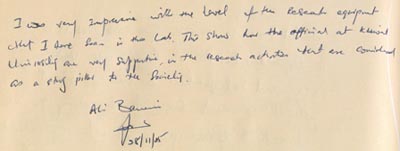 I was very impressive with the level of the Research equipment
that I have seen in the Lab. This shows how the official at
University are very supportive, in the research activities that are considered
as a strong pillar to the Society.
Ali
28/11/05